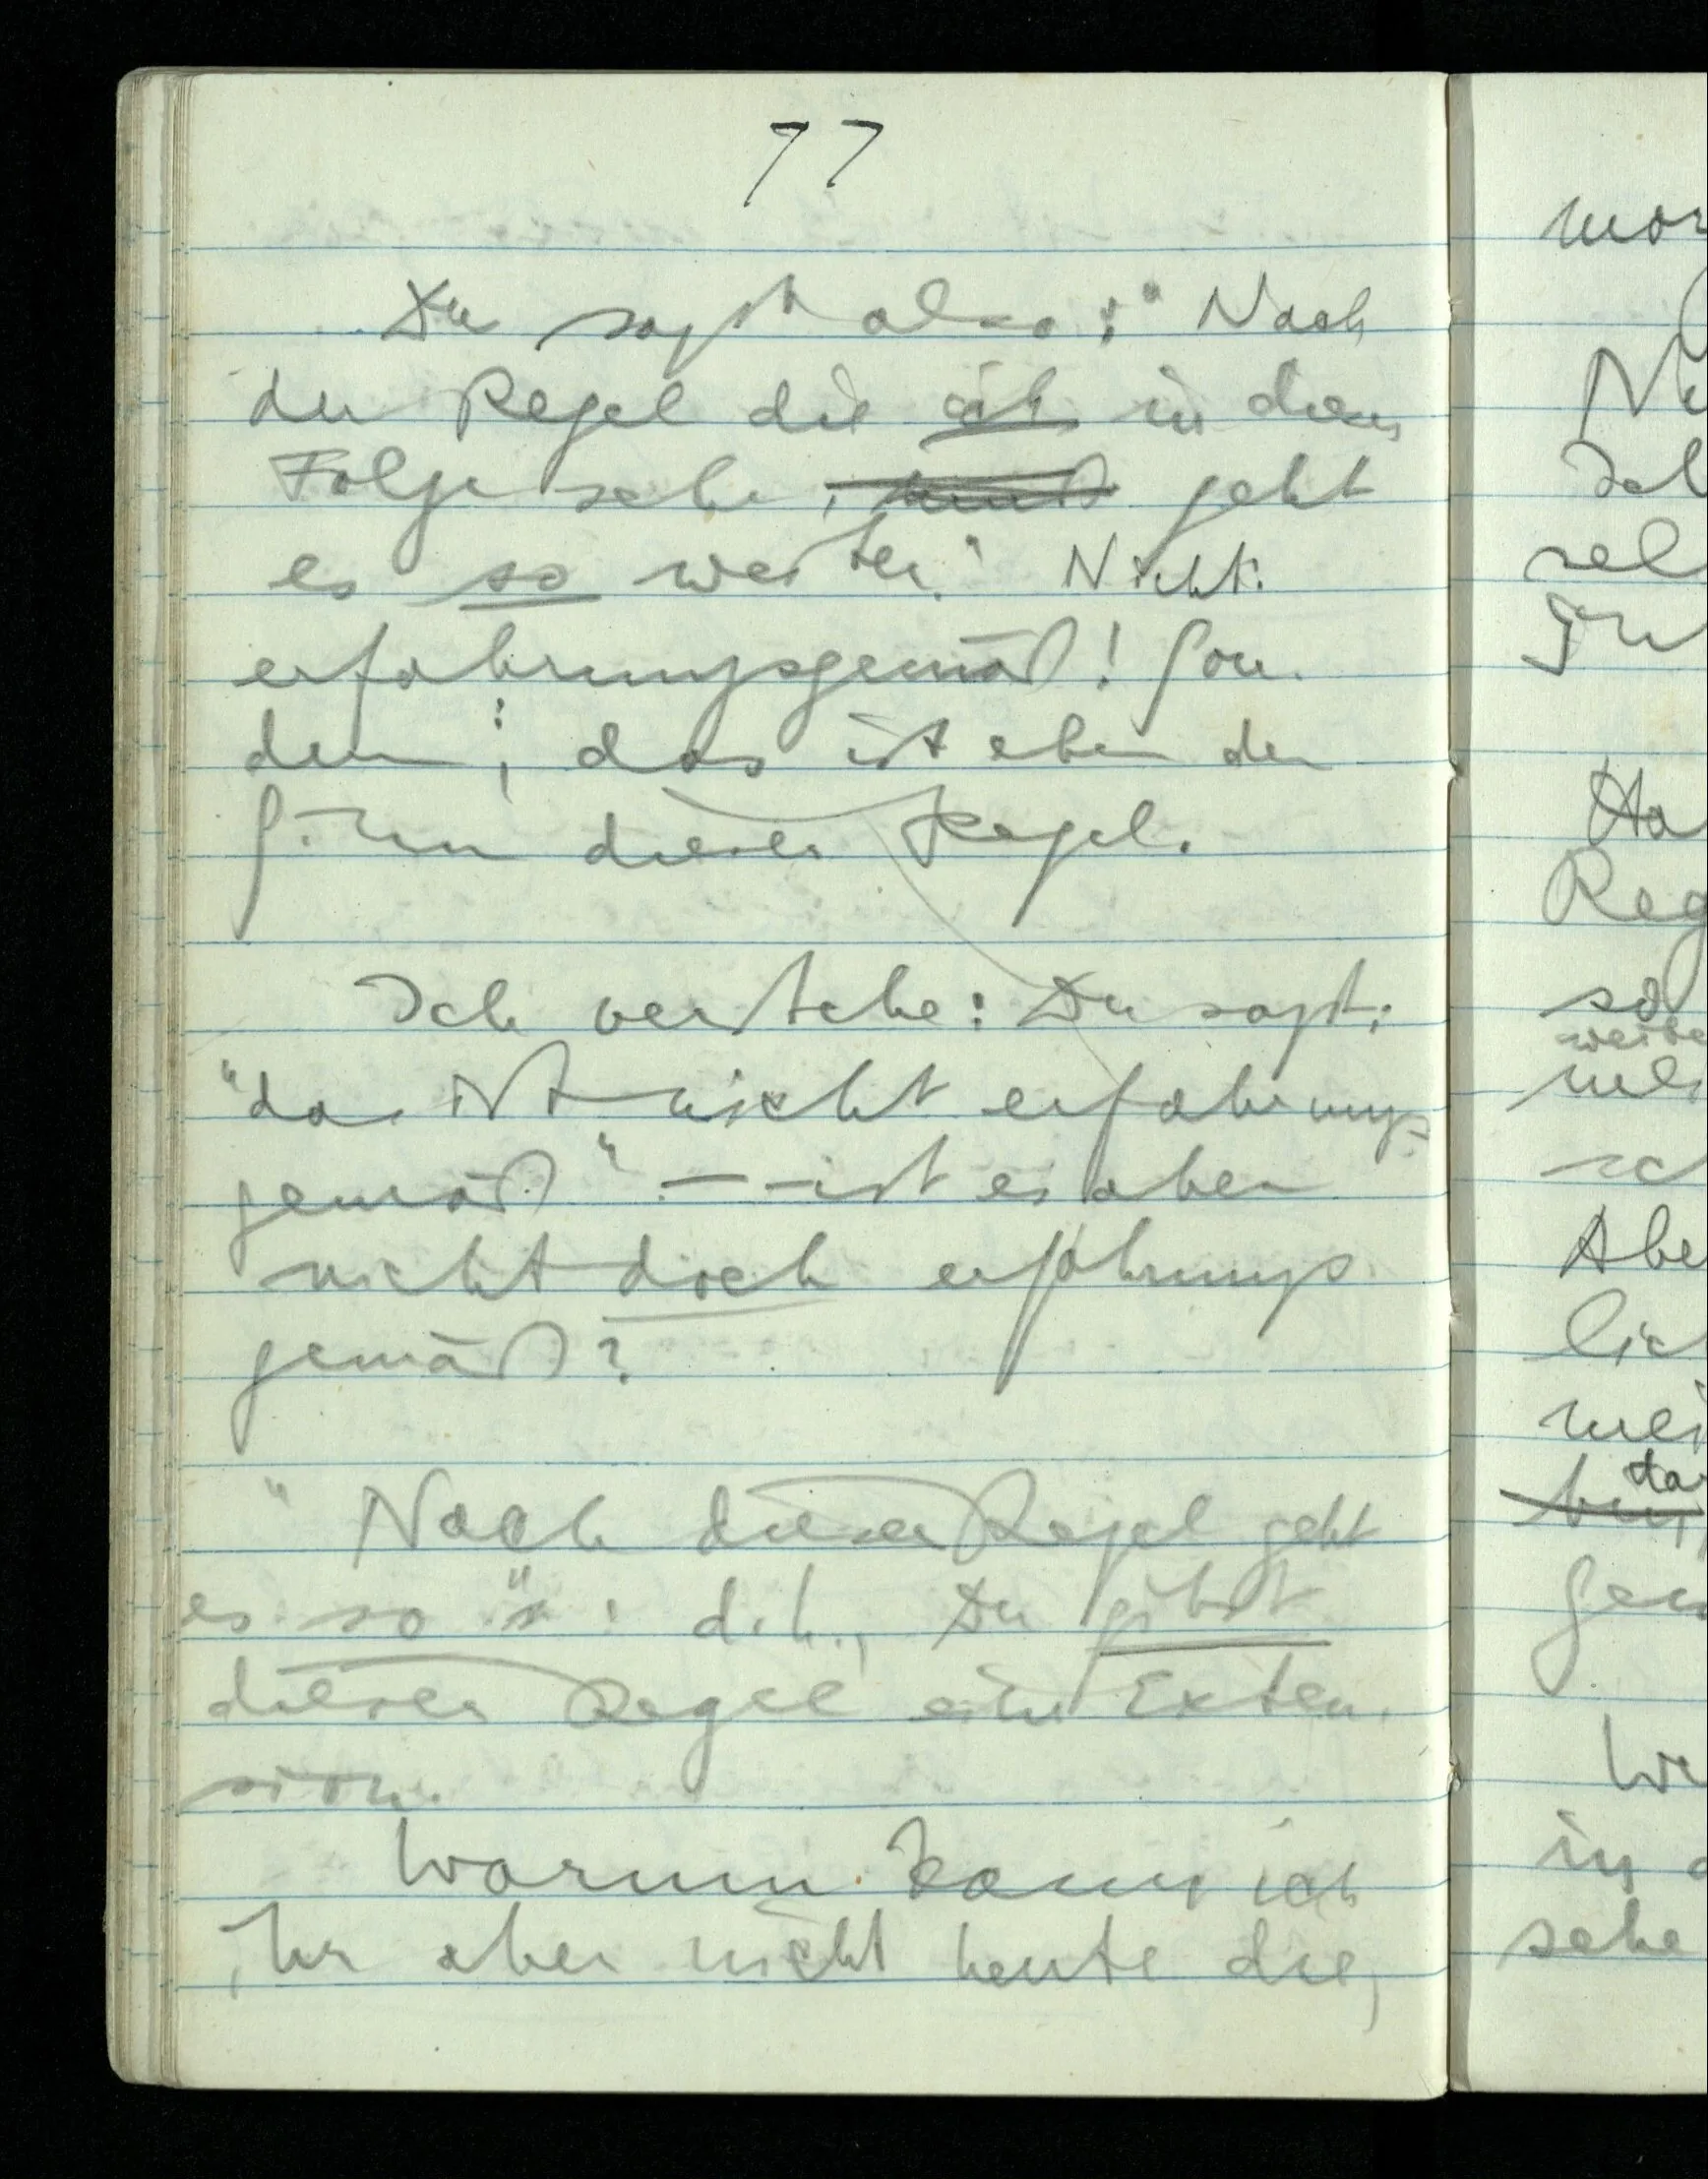 77
Du sagst also: "Nach
der Regel die ich in dieser
Folge sehe, geht
es so weiter." Nicht:
erfahrungsgemäß! Son-
dern: das ist eben der
Sinn dieser Regel.
Ich verstehe: Du sagst:
"das ist nicht erfahrungs-
gemäß" – – ist es aber
nicht doch erfahrungs-
gemäß?
"Nach dieser Regel geht
es so": d.h., Du gibst
dieser Regel eine Exten-
sion.
Warum kann ich
ihr aber nicht heute die,
Reg
so
weite
Abe
in
sehe